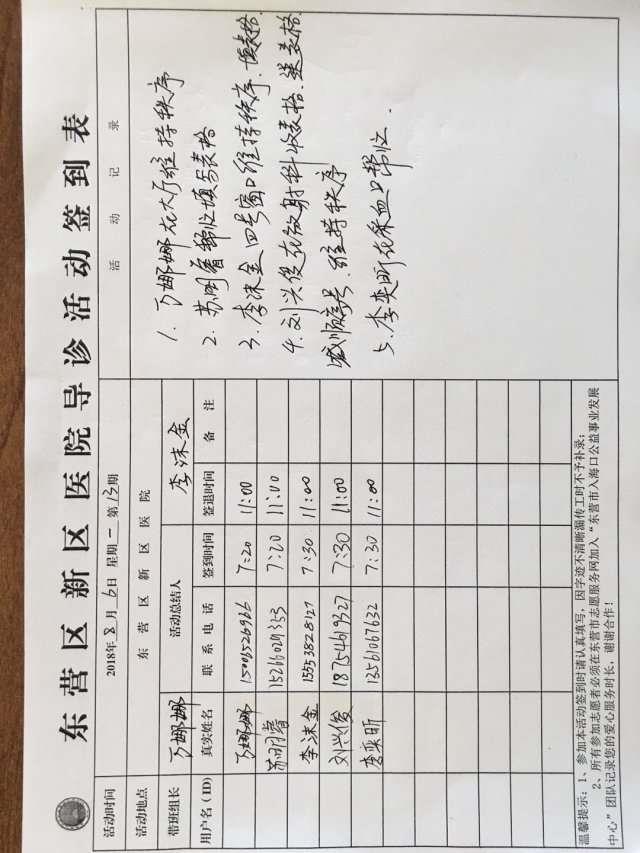 东营区新区医院导诊活动签到表
活动时间 2018年8月6日 星期一 第13期 活动记录
活动地点 东营区新区医院
带班组长 丁娜娜 活动总结人 李沫金
用户名(ID) 真实姓名 联系电话 签到时间 签退时间 备注
丁娜娜 15006526966 7:20 11:00
苏明睿 15266021353 7:20 11:00
李沫金 15553828127 7:30 11:00
刘兴俊 18754619327 7:30 11:00
李奕昕 13561067632 7:30 11:00
1. 丁娜娜在大厅维持秩序
2. 苏明睿帮忙填写表格
3. 李沫金四号窗口维持秩序、填表格.
4. 刘兴俊在放射科收表格、送表格、
喊顺序号、维持秩序
5、李奕昕在采血口帮忙.
温馨提示:1、参加本活动签到时请认真填写,因字迹不清晰漏传工时不予补录;
2、所有参加志愿者必须在东营市志愿服务网加入“东营市入海口公益事业发展
中心”团队记录您的爱心服务时长,谢谢合作!